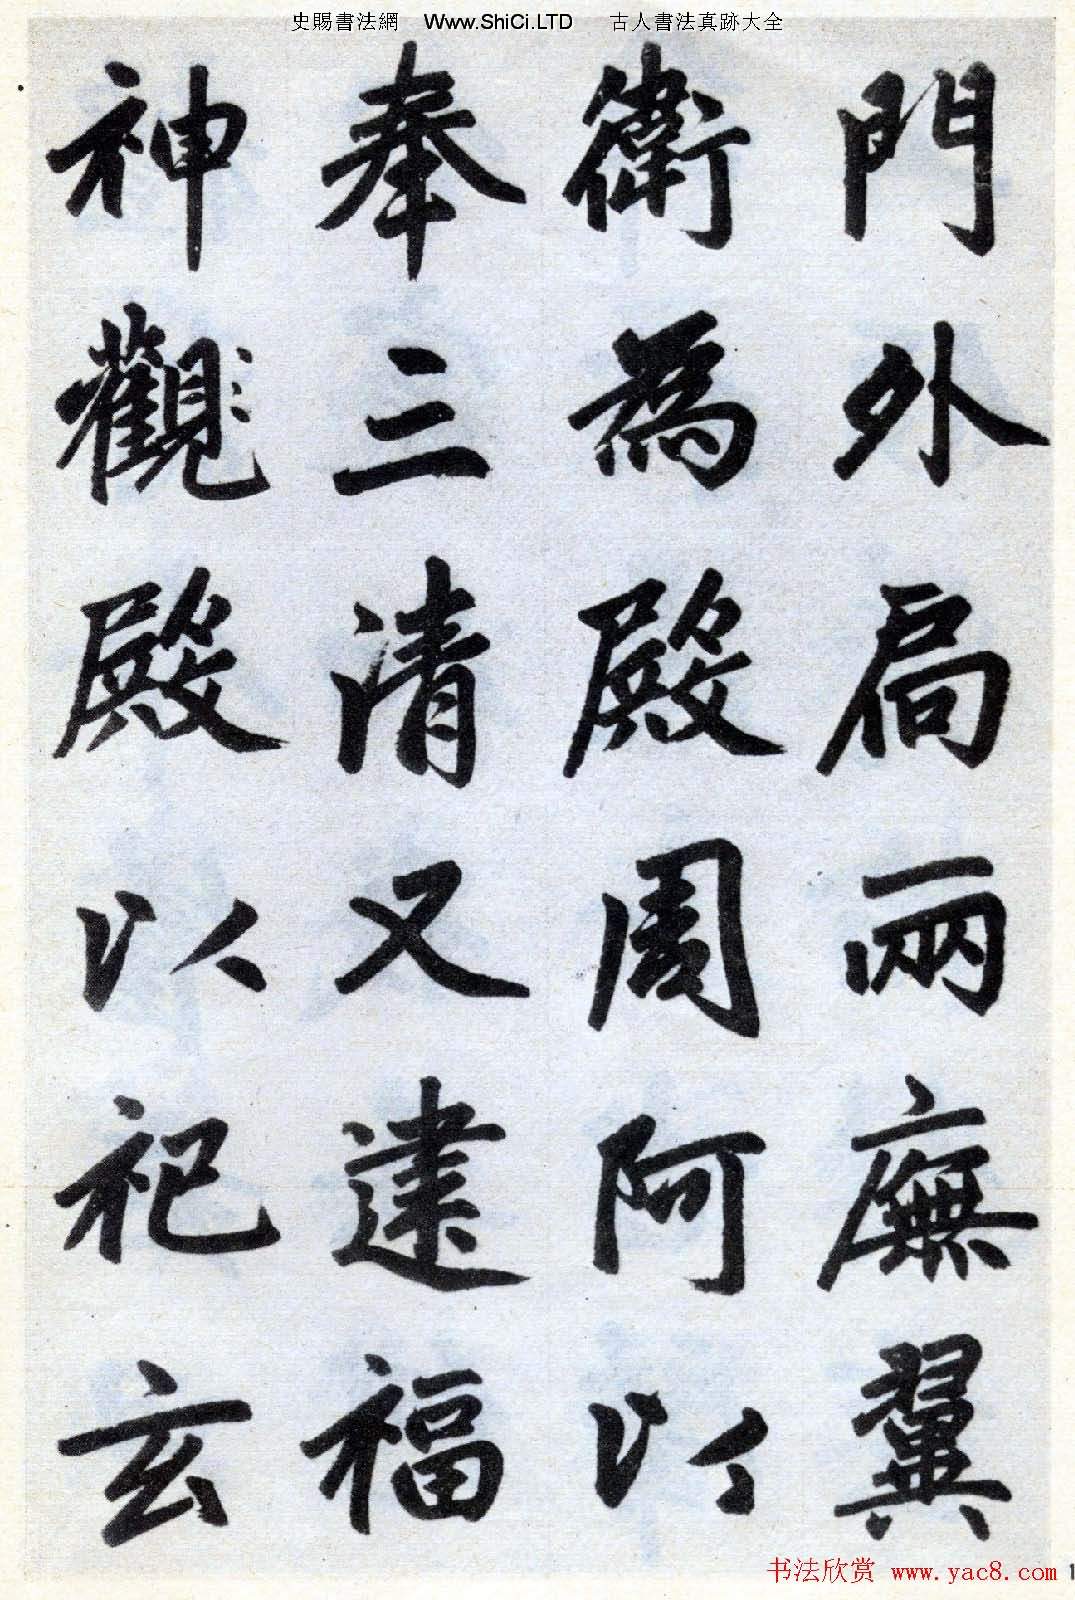 史賜書法網 Www.ShiCi.LTD 古人書法真跡大全
門外扃兩廡翼
衛為殿周阿以
奉三清又建福
神觀殿以祀玄
书法欣赏 www.yac8.com 1